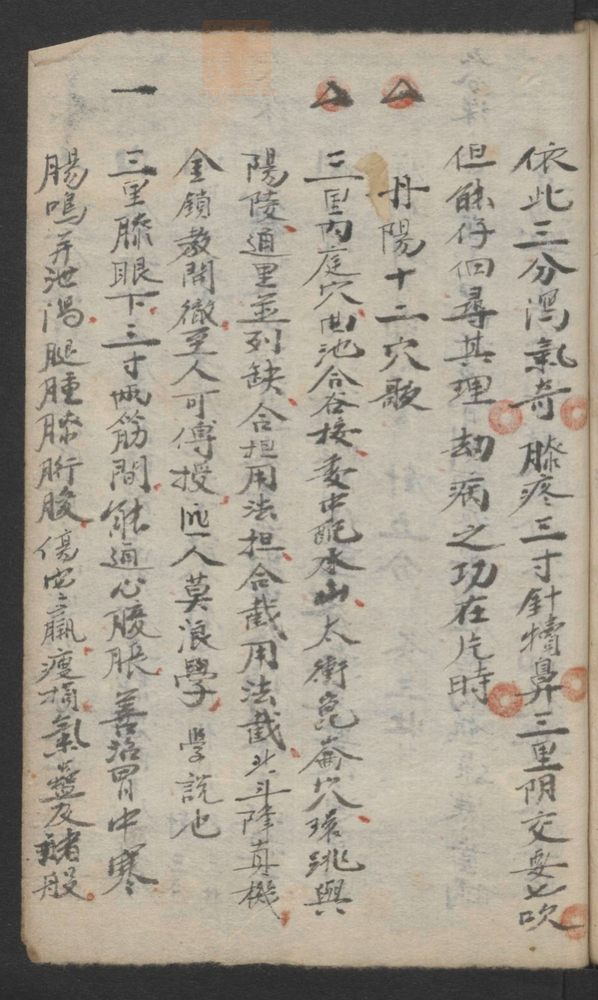 依此三分瀉氣奇膝疼三寸針犢鼻三里阴交要七吹
但能仔细尋其理劫病之功在片時
丹陽十二穴歌
三里內庭穴曲池合谷接委中配承山太衝崑崙穴環跳與
陽陵通里並列缺合担用法担合截用法截北斗降真機
金鎖教開徹至人可傳授匪人莫浪學 學說也
一 三里膝眼下三寸両筋間能通心腹脹善治胃中寒
腸鳴并池瀉腿腫膝胻酸傷寒羸瘦損氣蠱及諸般